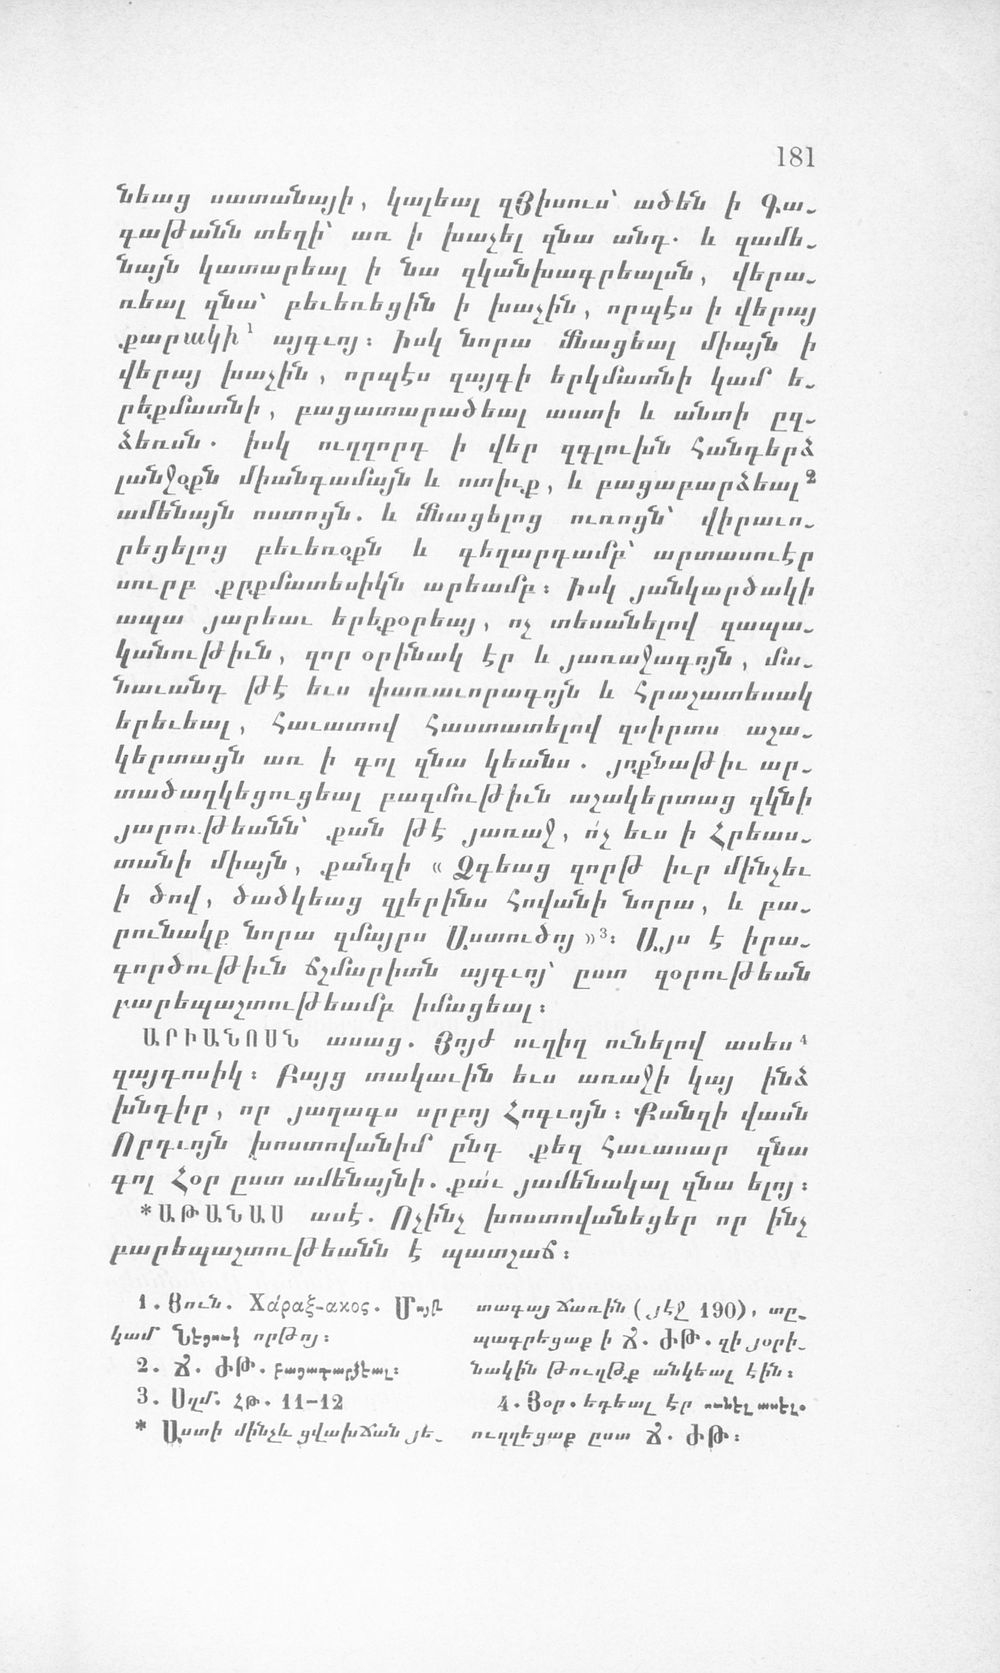 181
նեաց սատանայի, կալեալ զՅիսուս՝ ածեն ի Գա-
գաթանն տեղի՝ առ ի խաչել զնա անդ. և զամե-
նայն կատարեալ ի նա զկանխագրեալսն, վերա-
ռեալ զնա՝ բեւեռեցին ի խաչին, որպէս ի վերայ
քարակի¹ այգւոյ։ իսկ նորա մնացեալ միայն ի
վերայ խաչին, որպէս զայգի երկմատնի կամ ե-
րեքմատնի, բացատարածեալ աստի և անտի ըզ-
ձեռսն. իսկ ուղղորդ ի վեր զգլուխն հանդերձ
լանջօքն միանգամայն և ոտիւք, և բացաբարձեալ²
ամենայն ոստոցն. և մնացելոց ուռոցն՝ վիրաւո-
րեցելոց բեւեռօքն և գեղարդամբ՝ արտասուէր
սուրբ քրքմատեսիկն արեամբ։ իսկ յանկարծակի
ապա յարեաւ երեքօրեայ, ոչ տեսանելով զապա-
կանութիւն, զոր օրինակ էր և յառաջագոյն, մա-
նաւանդ թէ եւս փառաւորագոյն և հրաշատեսակ
երեւեալ, հաւատով հաստատելով զսիրտս աշա-
կերտացն առ ի գոլ զնա կեանս. յոքնաթիւ ար-
տածաղկեցուցեալ բազմութիւն աշակերտաց զկնի
յարութեանն՝ քան թէ յառաջ, ո՛չ եւս ի Հրեաս-
տանի միայն, քանզի « Ձգեաց զորթ իւր մինչեւ
ի ծով, ծածկեաց զլերինս հովանի նորա, և բա-
րունակք նորա զմայրս Աստուծոյ »³։ Այս է իրա-
գործութիւն ճշմարիտն այգւոյ՝ ըստ զօրութեան
բարեպաշտութեամբ իմացեալ։
ԱՐԻԱՆՈՍՆ ասաց. Յոյժ ուղիղ ունելով ասես⁴
զայդոսիկ։ Բայց տակաւին եւս առաջի կայ ինձ
խնդիր, որ յաղագս սրբոյ Հոգւոյն։ Քանզի վասն
Որդւոյն խոստովանիմ ընդ քեզ հաւասար զնա
գոլ Հօր ըստ ամենայնի. քա՛ւ յամենակալ զնա ելոյ։
*ԱԹԱՆԱՍ ասէ. Ոչինչ խոստովանեցեր որ ինչ
բարեպաշտութեանն է պատշաճ։
1. Յուն. Χάραξ-ακος. Մոյթ
կամ Նեցուկ որթոյ։
2. Ճ. ԺԹ. բացատարձեալ։
3. Սղմ. ՀԹ. 11-12
* Աստի մինչև ցվախճան յե-
տագայ ճառին (յէջ 190), տը-
պագրեցաք ի Ճ. ԺԹ. զի յօրի-
նակին թուղթք անկեալ էին։
4. Յօր. եդեալ էր ունել ասել.
ուղղեցաք ըստ Ճ. ԺԹ։